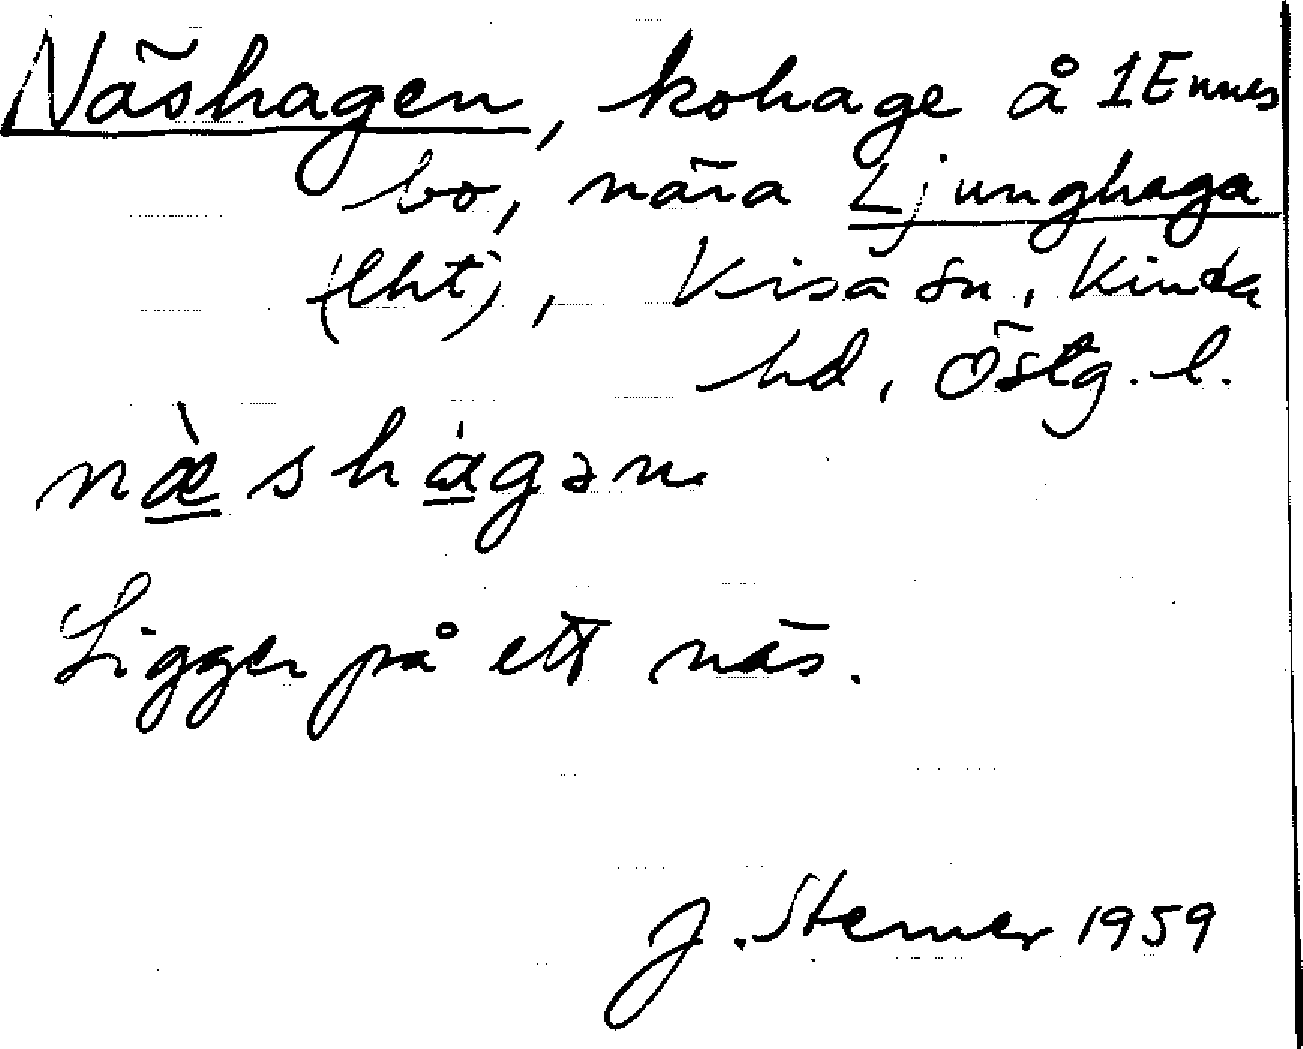 Näshagen, kohage å 1 Ennes
bo, nära Ljunghaga
(lht), Kisa sn, Kinda
hd, Östg. l.
næ̀shágən
Ligger på ett näs.
J. Sterner 1959